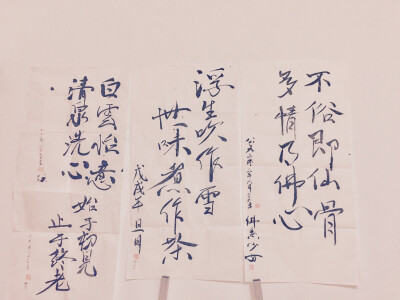 不俗即仙骨
多情乃佛心
浮生吹作雪
世味煮作茶
戊戌年
白雲怡意
清泉洗心
始于初見
止于終老